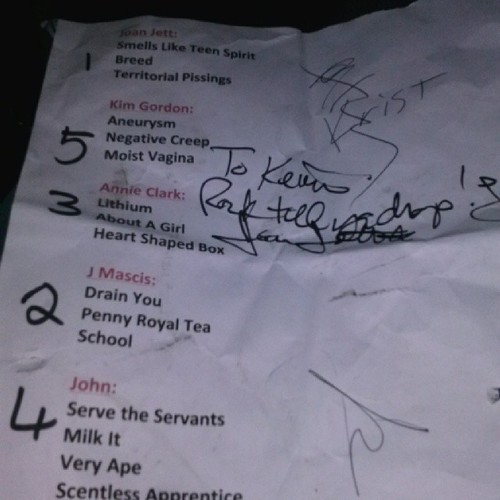 Joan Jett:
1
Smells Like Teen Spirit
Breed
Territorial Pissings
Krist
Kim Gordon:
Aneurysm
5
Negative Creep
Moist Vagina
To Kevin
Annie Clark:
3
Lithium
About A Girl
Heart Shaped Box
Rock till you drop!
J Mascis:
2
Drain You
Penny Royal Tea
School
John:
4
Serve the Servants
Milk It
Very Ape
Scentless Apprentice